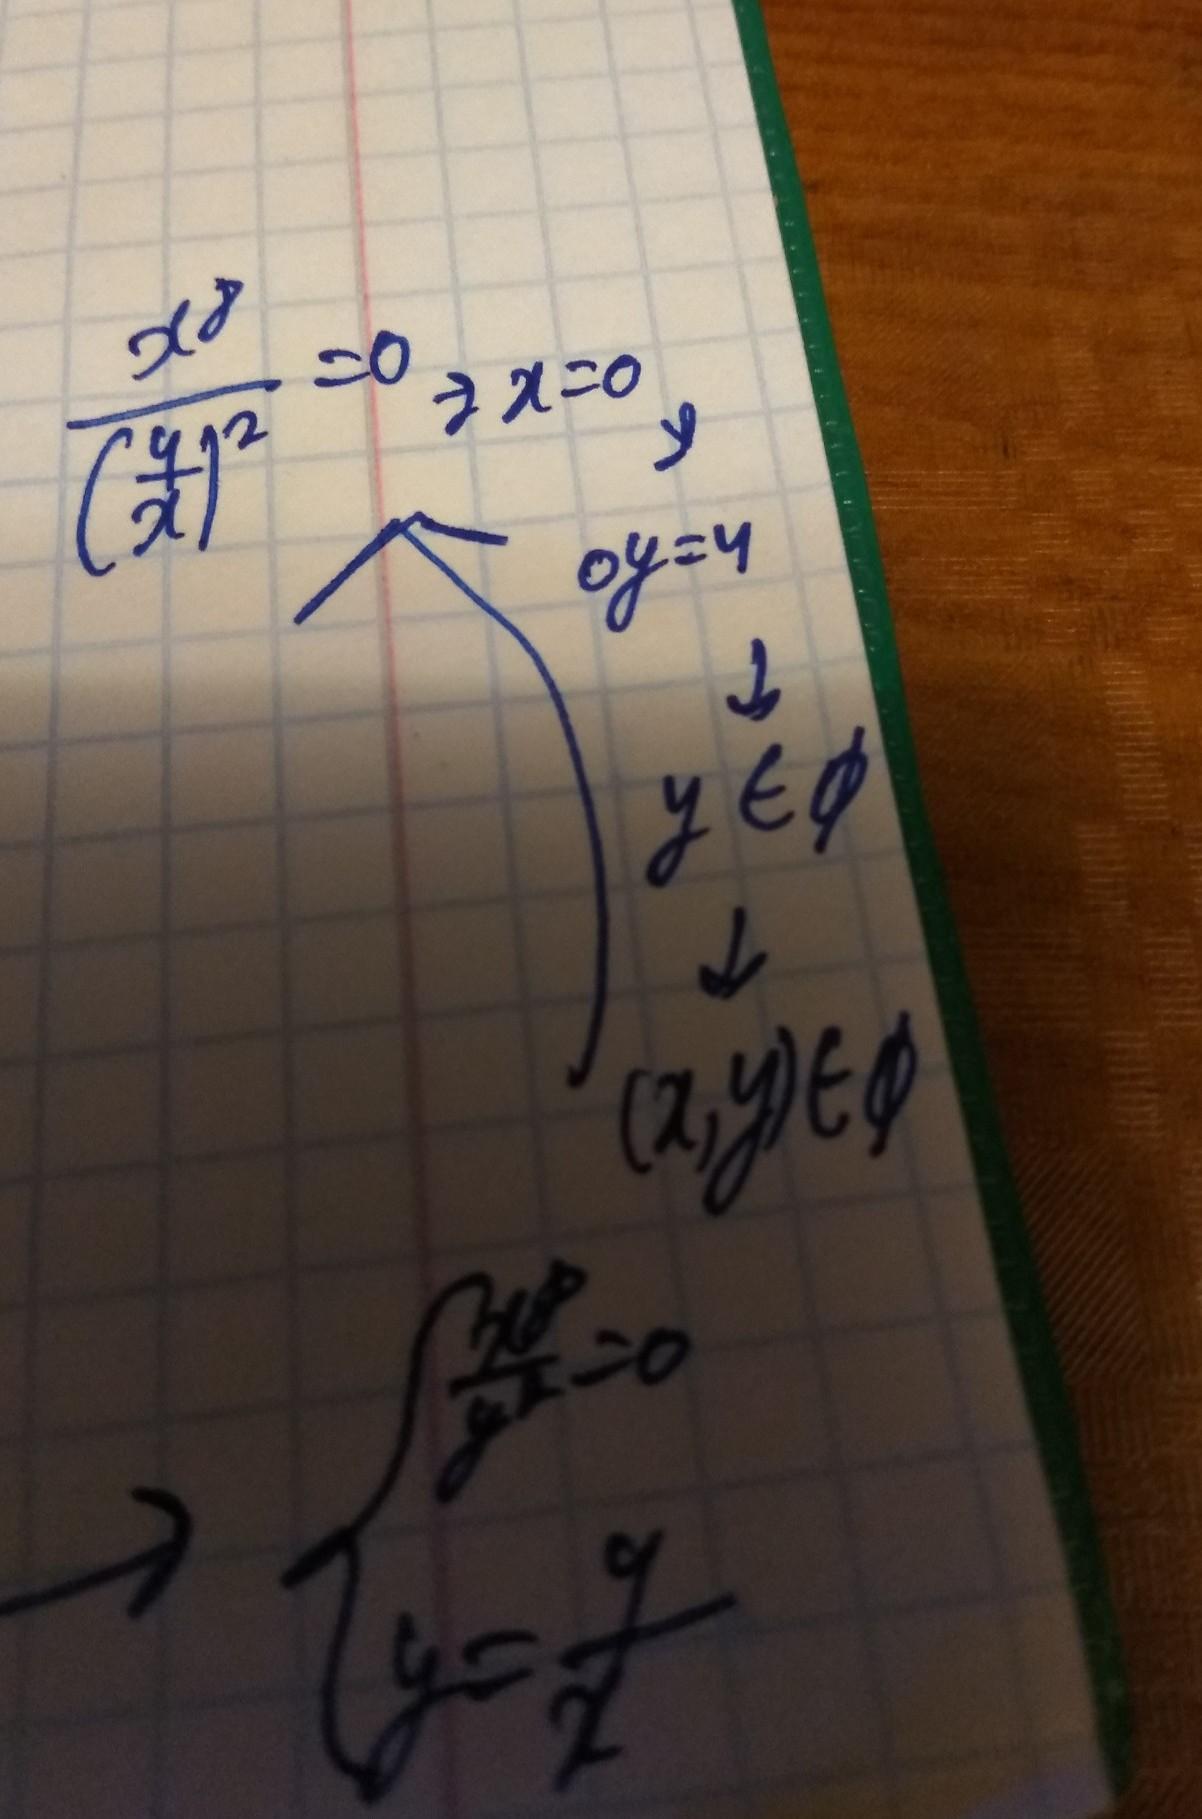 x⁸/(4/x)² = 0 → x = 0
0y = 4
↓
y ∈ ∅
↓
(x, y) ∈ ∅
→ { x⁸/y² = 0
y = 4/x